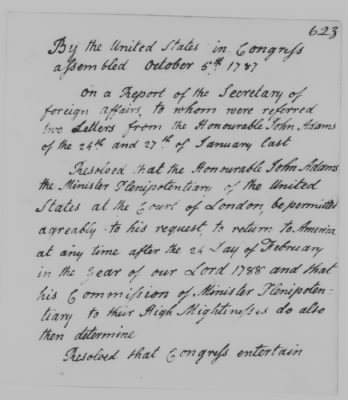 623
By the United States in Congress
assembled October 5th. 1787
On a Report of the Secretary of
foreign affairs, to whom were referred
two Letters from the Honourable John Adams
of the 24th and 27th of January last
Resolved that the Honourable John Adams
the Minister Plenipotentiary of the United
States at the Court of London, be permitted
agreably to his request, to return to America
at any time after the 24 Day of February
in the Year of our Lord 1788 and that
his Commission of Minister Plenipoten-
tiary to their High Mightinesses do also
then determine
Resolved that Congress entertain